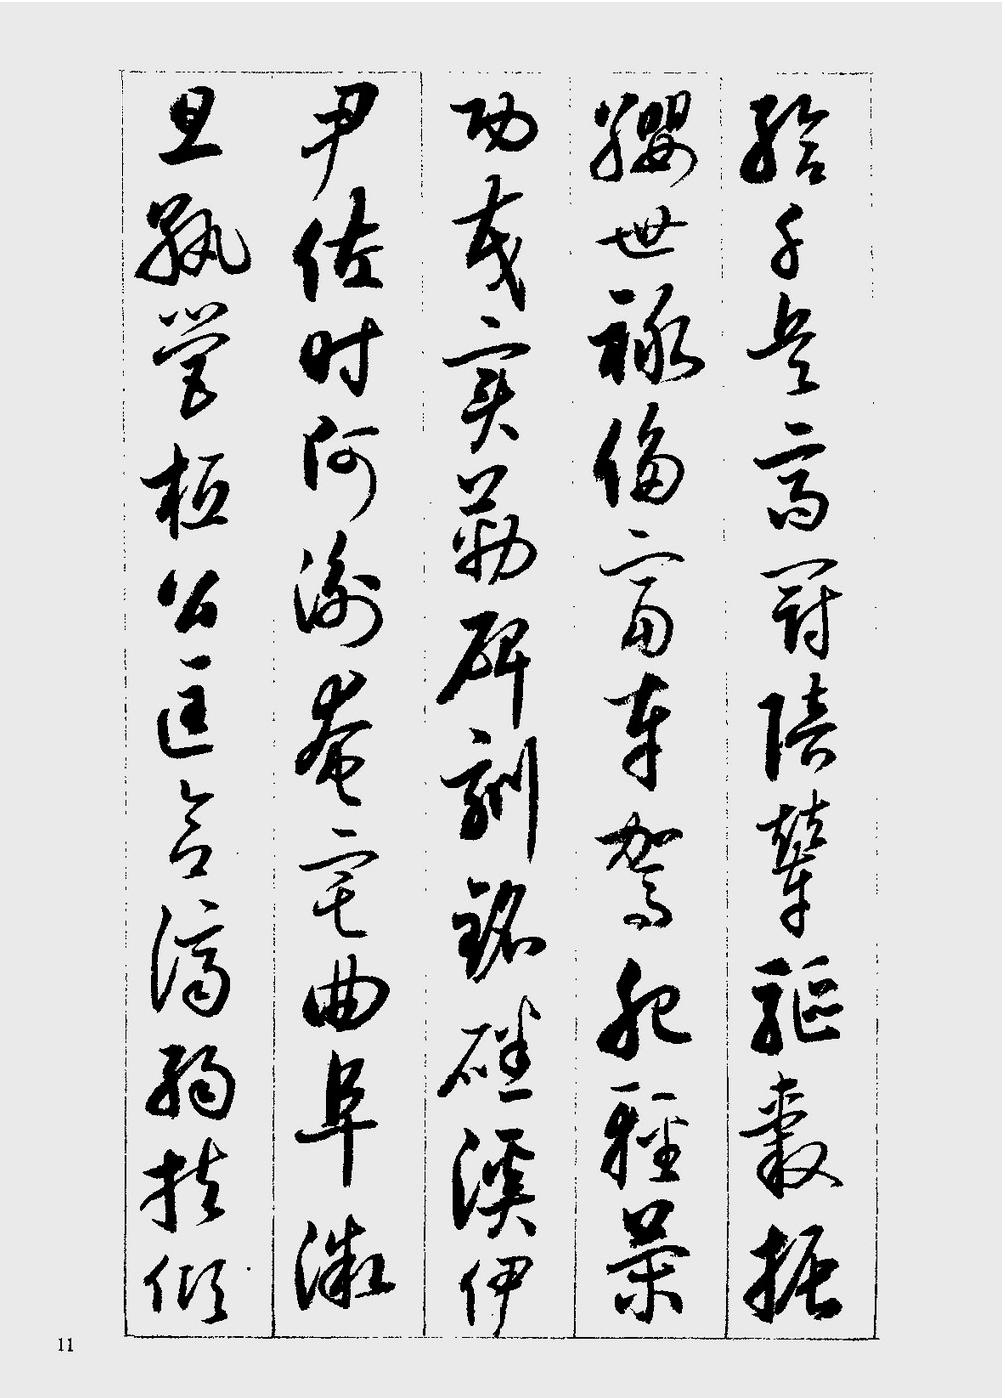 給千兵高冠陪輦驅轂振
纓世祿侈富車駕肥輕策
功茂實勒碑刻銘磻溪伊
尹佐時阿衡奄宅曲阜微
旦孰營桓公匡合濟弱扶傾
11